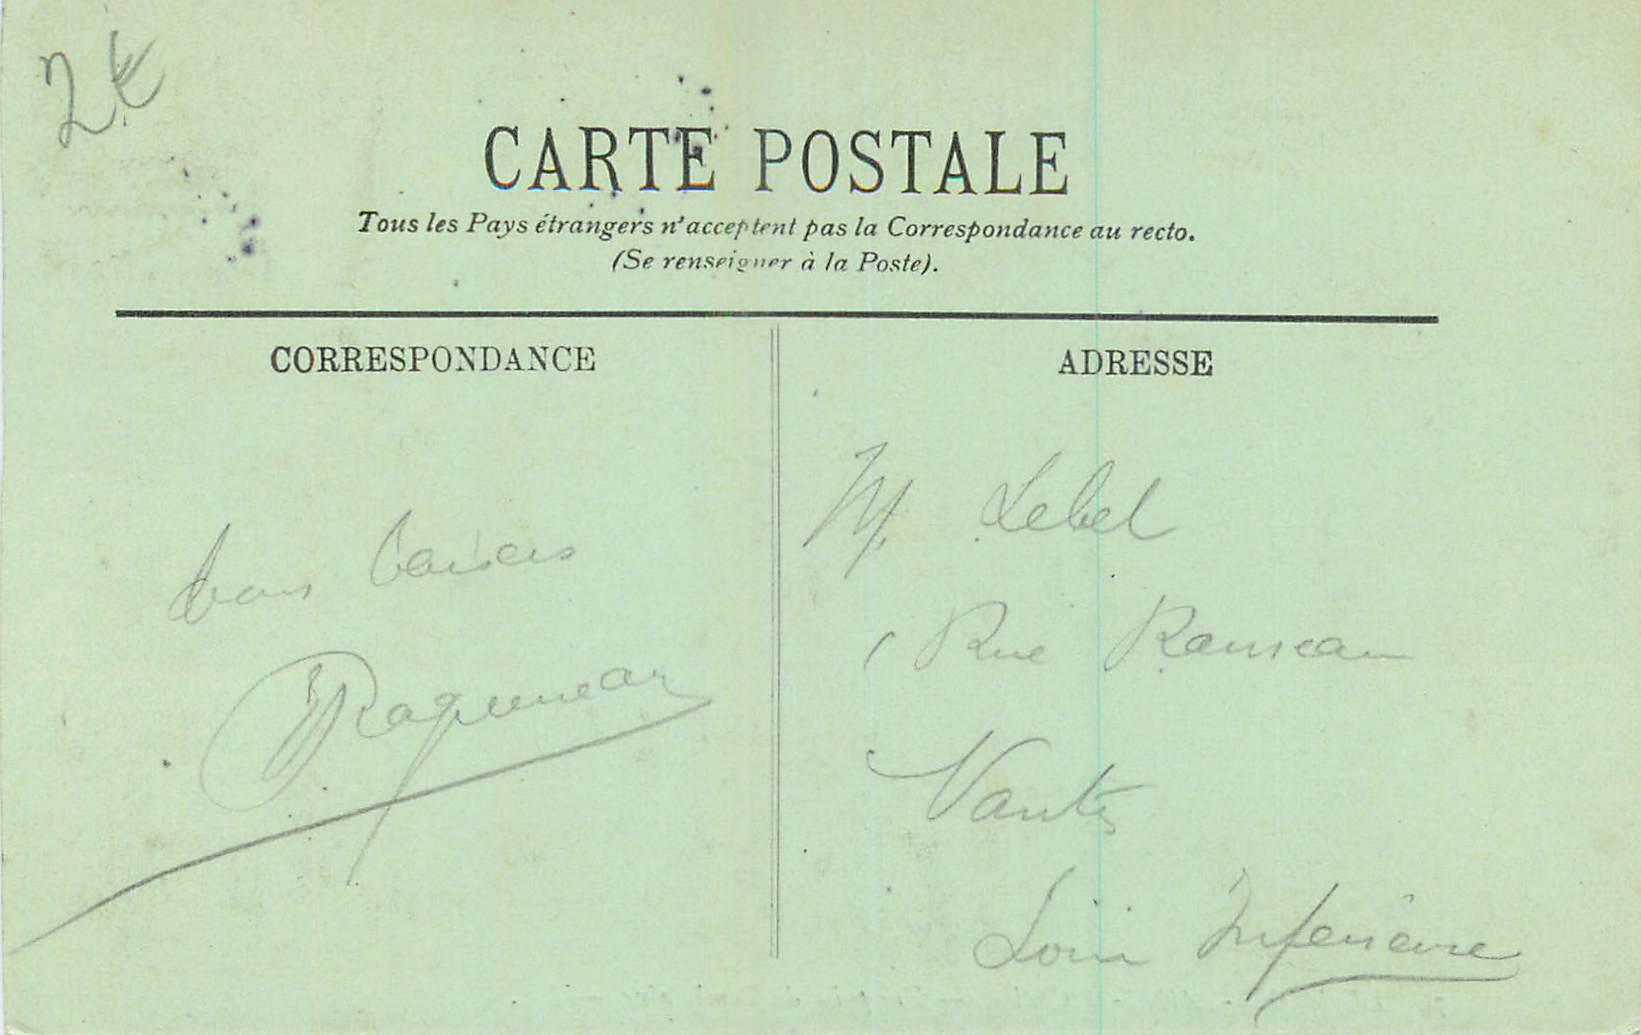 2€
CARTE POSTALE
Tous les Pays étrangers n'acceptent pas la Correspondance au recto.
(Se renseigner à la Poste).
CORRESPONDANCE
ADRESSE
bons baisers
Raguneau
M. Lebel
1 Rue Rameau
Nantes
Loire Inférieure